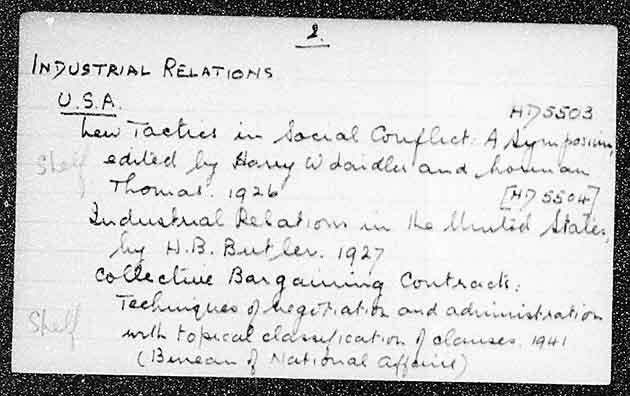 2.
INDUSTRIAL RELATIONS
U.S.A.
HD 5503
New Tactics in Social Conflict: A Symposium,
Shelf edited by Harry W Laidler and Norman
Thomas. 1926 [HD 5504]
Industrial Relations in the United States,
by H.B. Butler. 1927
Collective Bargaining Contracts:
Techniques of negotiation and administration
Shelf with topical classification of clauses. 1941
(Bureau of National Affairs)